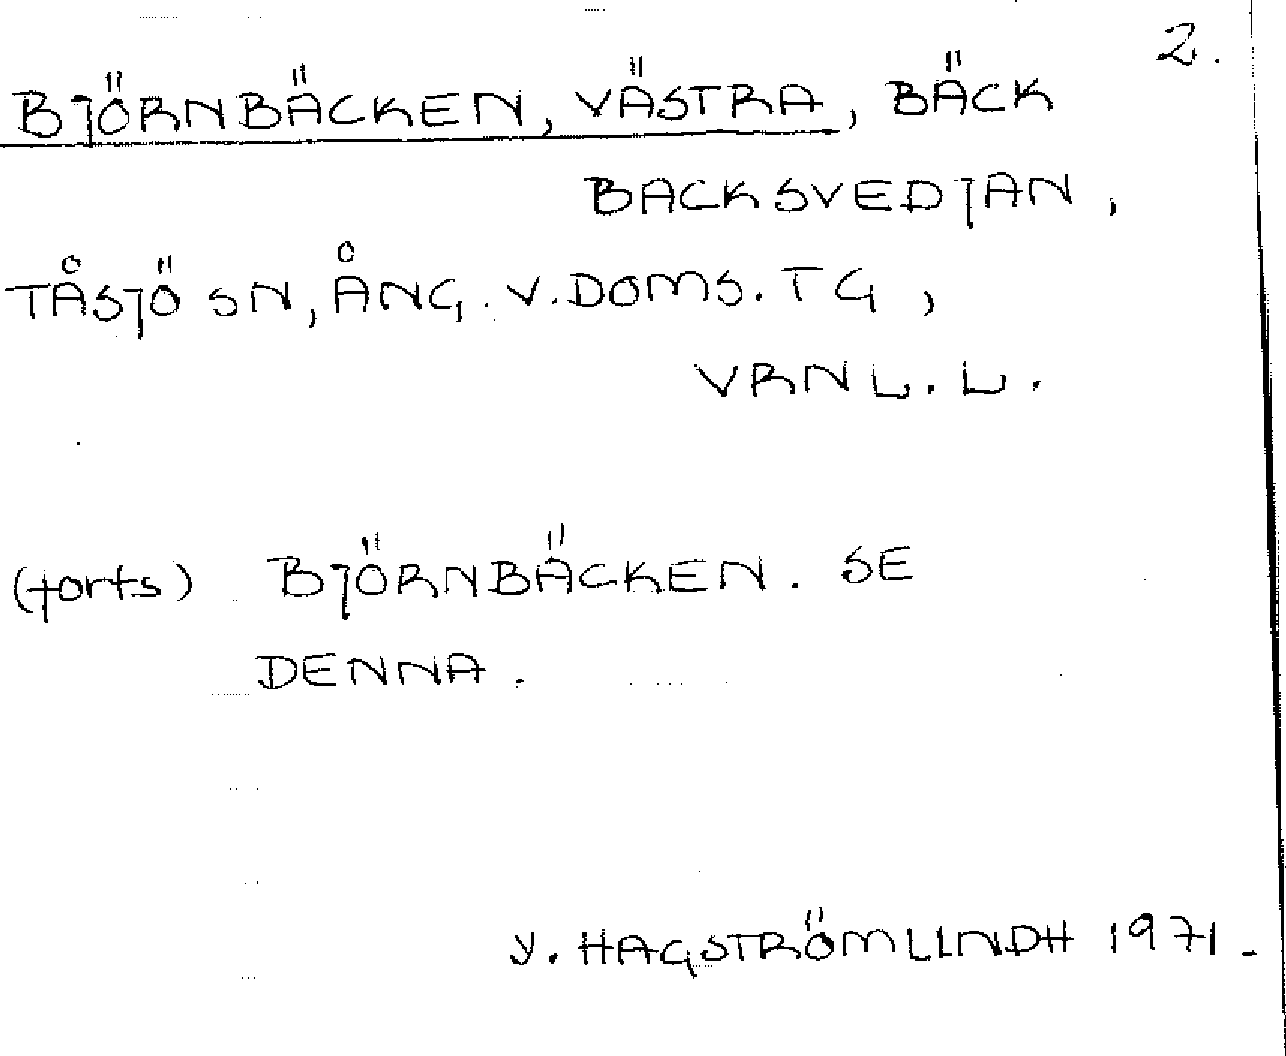 2.
BJÖRNBÄCKEN, VÄSTRA, BÄCK
BACKSVEDJAN,
TÅSJÖ SN, ÅNG. V. DOMS. TG,
VRNL. L.
(forts) BJÖRNBÄCKEN. SE
DENNA.
Y. HAGSTRÖMLINDH 1971.